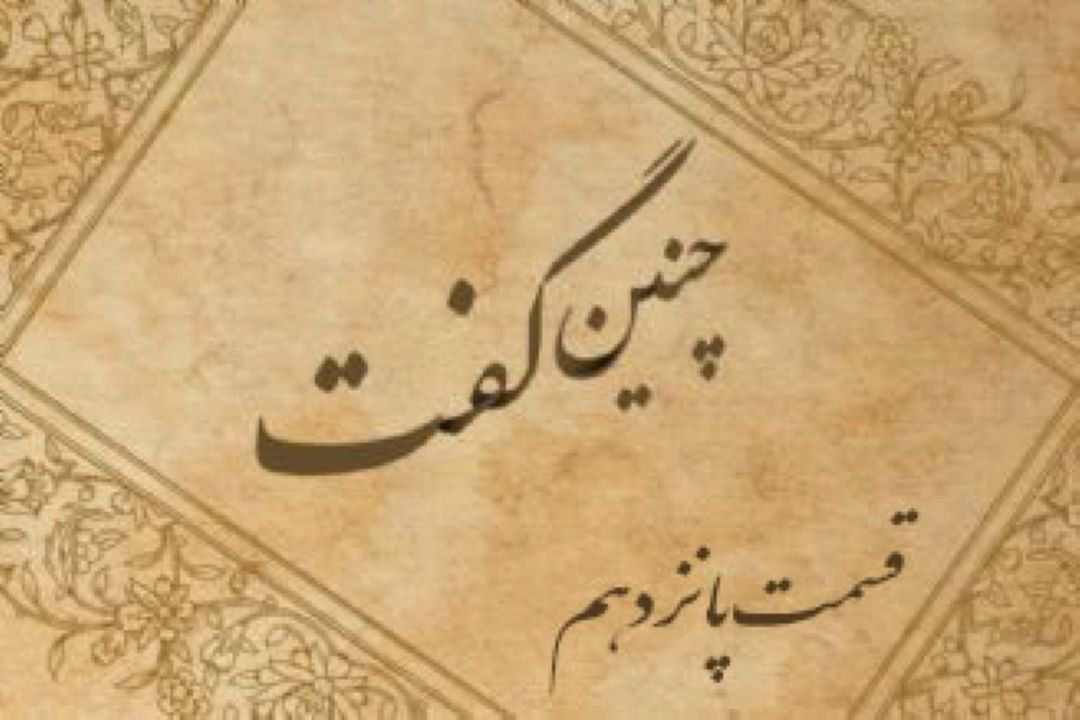 چنین گفت
قسمت پانزدهم